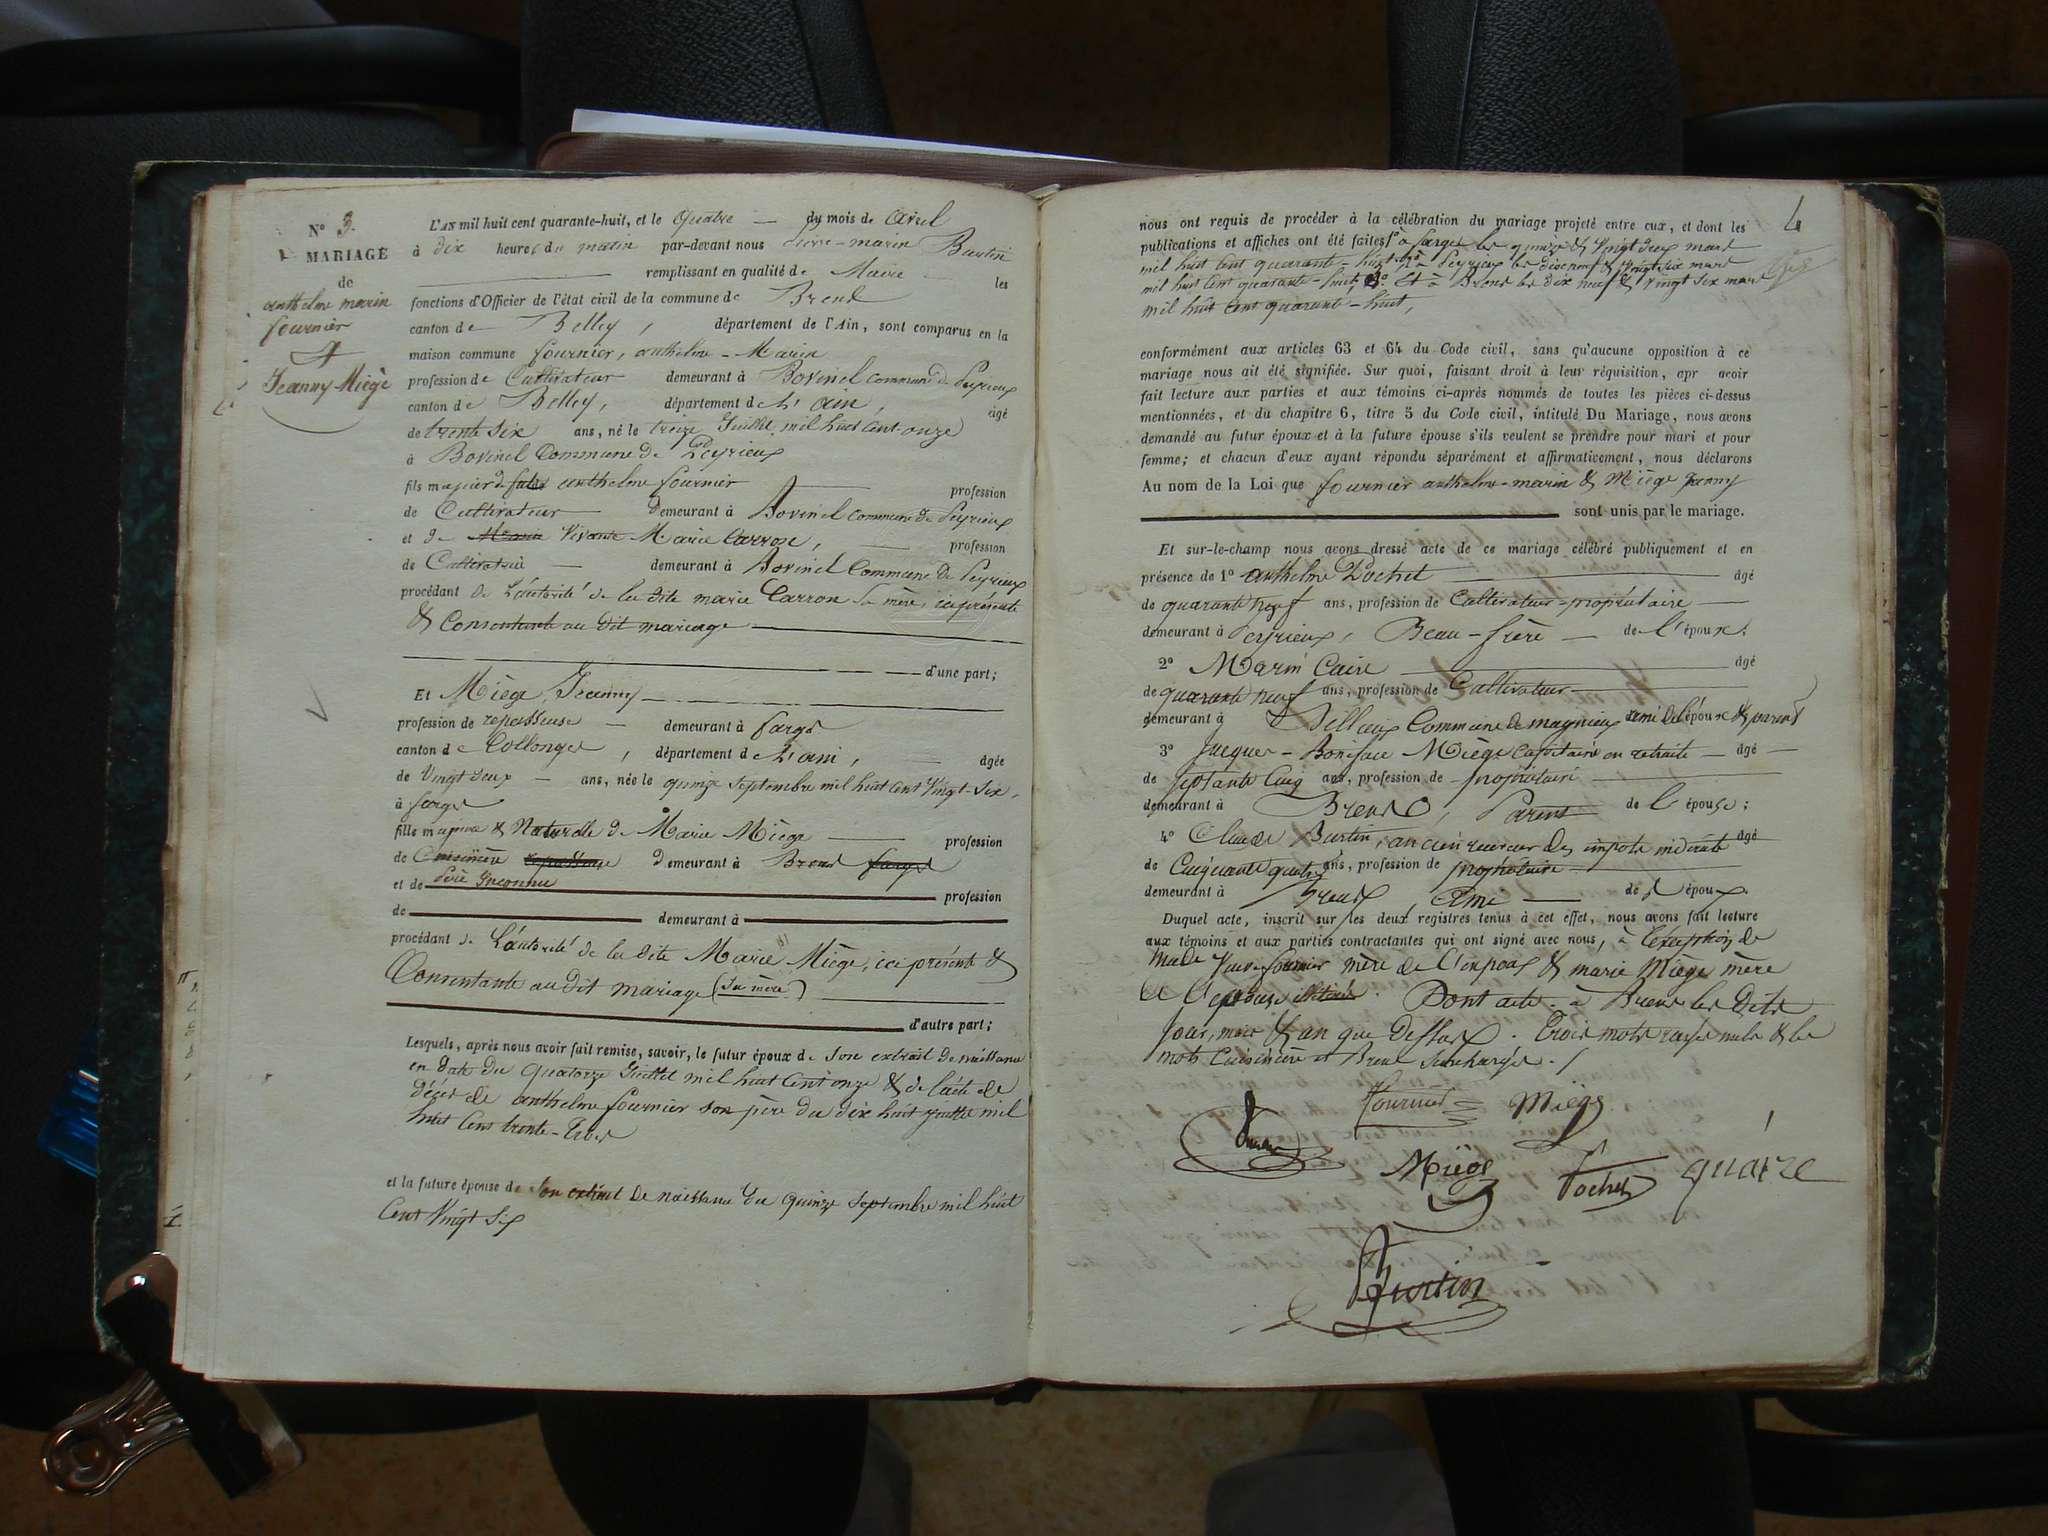 N° 3.
MARIAGE
de
anthelme marin
fournier
&
Jeanny Miège
L'AN mil huit cent quarante-huit, et le quatre du mois de avril
à dix heures du matin par-devant nous pierre-marin Burtin
remplissant en qualité de Maire les
fonctions d'Officier de l'état civil de la commune de Brens
canton de Belley, département de l'Ain, sont comparus en la
maison commune fournier, anthelme-Marin
profession de Cultivateur demeurant à Bovinel commune de Peyrieux
canton de Belley, département de L'ain, âgé
de trente six ans, né le treize Juillet mil huit cent onze
à Bovinel Commune de Peyrieux
fils majeur de feu anthelme fournier profession
de Cultivateur demeurant à Bovinel commune de Peyrieux
et de Vivante Marie Carron, profession
de Cultivatrice demeurant à Bovinel Commune de Peyrieux
procédant de L'autorité de la dite marie Carron sa mère, ici présente
& Consentante au dit mariage
d'une part;
Et Miège Jeanny
profession de repasseuse demeurant à farges
canton de Collonges, département de L'ain, âgée
de Vingt deux ans, née le quinze septembre mil huit cent vingt-six,
à farges
fille majeure & Naturelle de Marie Miège profession
de Cuisinière repasseuse demeurant à Brens farges
et de Père Inconnu profession
de demeurant à
procédant de L'autorité de la dite Marie Miège, ici présente &
Consentante au dit mariage (sa mère)
d'autre part;
Lesquels, après nous avoir fait remise, savoir, le futur époux de son extrait de naissance
en date du quatorze Juillet mil huit cent onze & de l'acte de
décès de anthelme fournier son père du dix huit juillet mil
huit cent trente-trois
et la future épouse de son extrait de naissance du quinze septembre mil huit
cent vingt six
4
nous ont requis de procéder à la célébration du mariage projeté entre eux, et dont les
publications et affiches ont été faites 1° à farges les quinze & vingt deux mars
mil huit cent quarante-huit 2° à Peyrieux les dix neuf & vingt six mars
mil huit cent quarante-huit, 3° & à Brens les dix neuf & vingt six mars
mil huit cent quarante-huit,
conformément aux articles 63 et 64 du Code civil, sans qu'aucune opposition à ce
mariage nous ait été signifiée. Sur quoi, faisant droit à leur réquisition, apr avoir
fait lecture aux parties et aux témoins ci-après nommés de toutes les pièces ci-dessus
mentionnées, et du chapitre 6, titre 5 du Code civil, intitulé Du Mariage, nous avons
demandé au futur époux et à la future épouse s'ils veulent se prendre pour mari et pour
femme; et chacun d'eux ayant répondu séparément et affirmativement, nous déclarons
Au nom de la Loi que fournier anthelme-marin & Miège Jeanny
sont unis par le mariage.
Et sur-le-champ nous avons dressé acte de ce mariage célébré publiquement et en
présence de 1° anthelme Pochet âgé
de quarante neuf ans, profession de Cultivateur-propriétaire
demeurant à Peyrieux, Beau-frère de l'époux.
2° Marin Caire âgé
de quarante neuf ans, profession de Cultivateur
demeurant à Commune de magnieux ami de l'époux & parent
3° Jacques-Boniface Miège Capitaine en retraite âgé
de septante cinq ans, profession de propriétaire
demeurant à Brens, Parent de l'épouse;
4° Claude Burtin, ancien receveur des impots indirects âgé
de cinquante quatre ans, profession de propriétaire
demeurant à Brens, ami de l'époux.
Duquel acte, inscrit sur les deux registres tenus à cet effet, nous avons fait lecture
aux témoins et aux parties contractantes qui ont signé avec nous, à l'éxception de
Made Veuve fournier mère de l'époux & marie Miège mère
de l'épouse illitérés. Dont acte. à Brens les dits
jour, mois & an que dessus. Trois mots rayés nuls & les
mots Cuisinière et Brens surchargés. /
Fournier Miège
Burtin
Miège Pochet quaire
Burtin